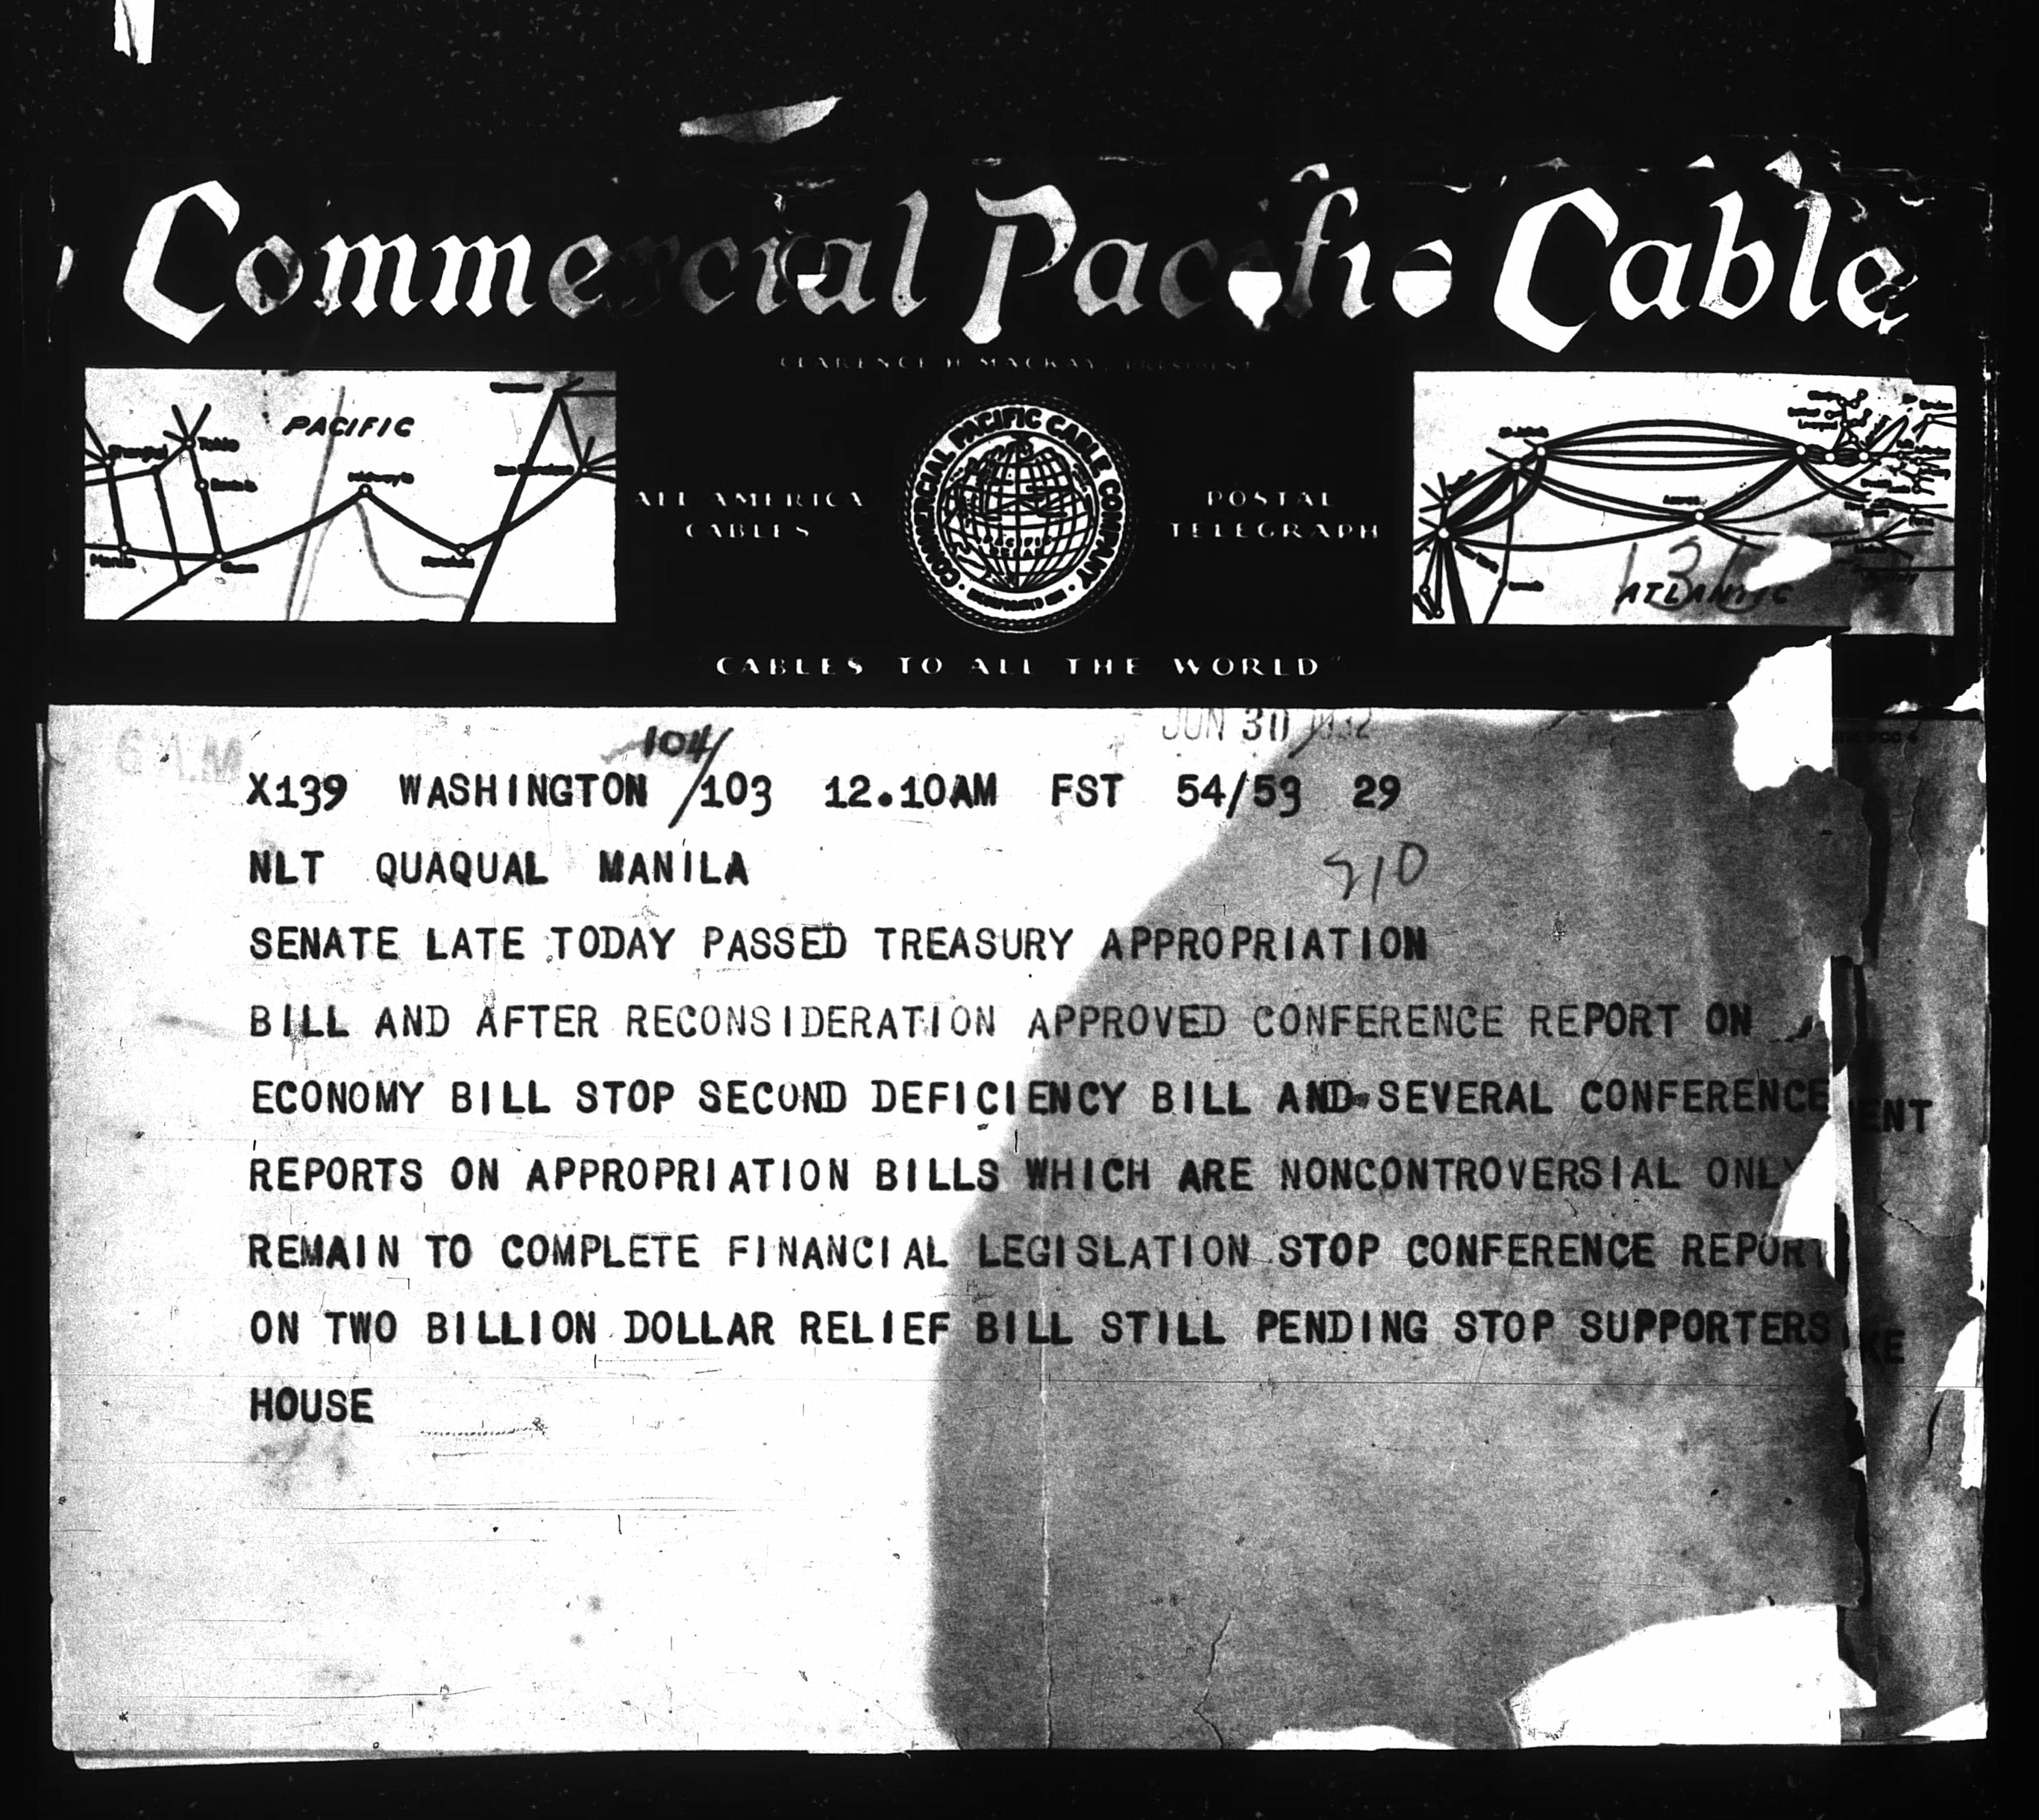 Commercial Pacific Cable
CLARENCE H. MACKAY, PRESIDENT
PACIFIC
Shanghai
Tokio
Midway Is
San Francisco
Manila
Guam
Honolulu
ALL AMERICA
CABLES
COMMERCIAL PACIFIC CABLE COMPANY
POSTAL
TELEGRAPH
Azores
ATLANTIC
"CABLES TO ALL THE WORLD"
6 A.M
104/
JUN 30 1932
X139 WASHINGTON /103 12.10AM FST 54/53 29
NLT QUAQUAL MANILA
910
SENATE LATE TODAY PASSED TREASURY APPROPRIATION
BILL AND AFTER RECONSIDERATION APPROVED CONFERENCE REPORT ON
ECONOMY BILL STOP SECOND DEFICIENCY BILL AND SEVERAL CONFERENCE
ENT
REPORTS ON APPROPRIATION BILLS WHICH ARE NONCONTROVERSIAL ONLY
REMAIN TO COMPLETE FINANCIAL LEGISLATION STOP CONFERENCE REPORT
ON TWO BILLION DOLLAR RELIEF BILL STILL PENDING STOP SUPPORTERS
KE
HOUSE